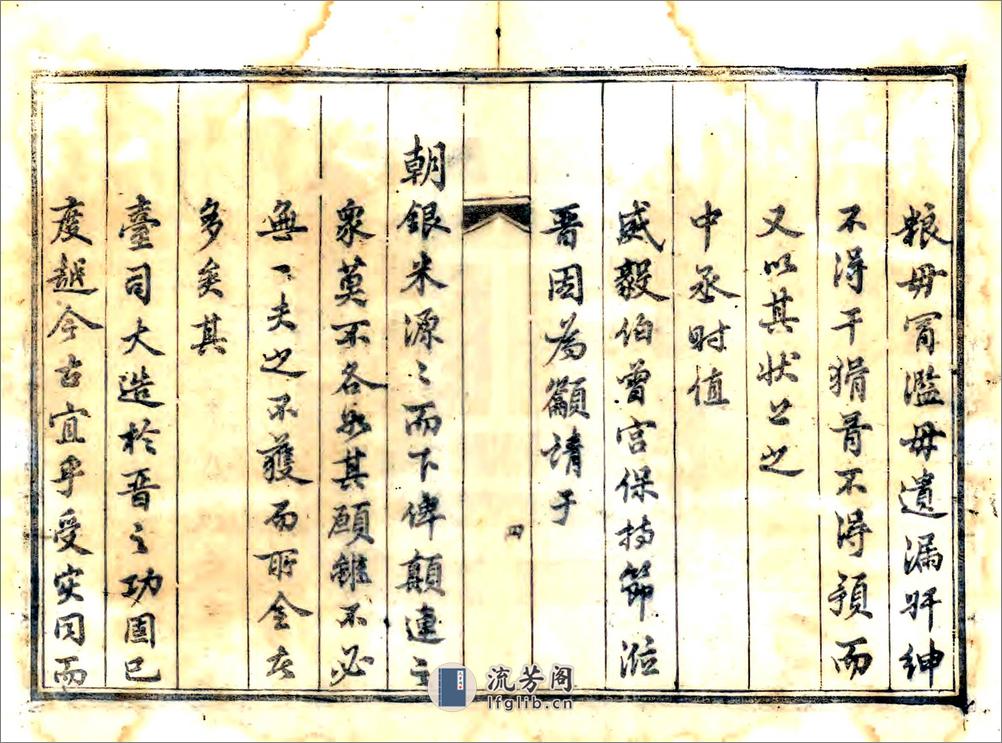 粮毋冒濫毋遺漏奸紳
不得干猾胥不得預而
又以其狀上之
中丞时值
威毅伯曾宮保持節涖
晋因為籲請于
四
朝銀米源〻而下俾顛連之
衆莫不各如其願雖不必
無一夫之不獲而所全者
多矣其
臺司大造於晋之功固已
度越今古宜乎受灾同而
流芳阁
lfglib.cn